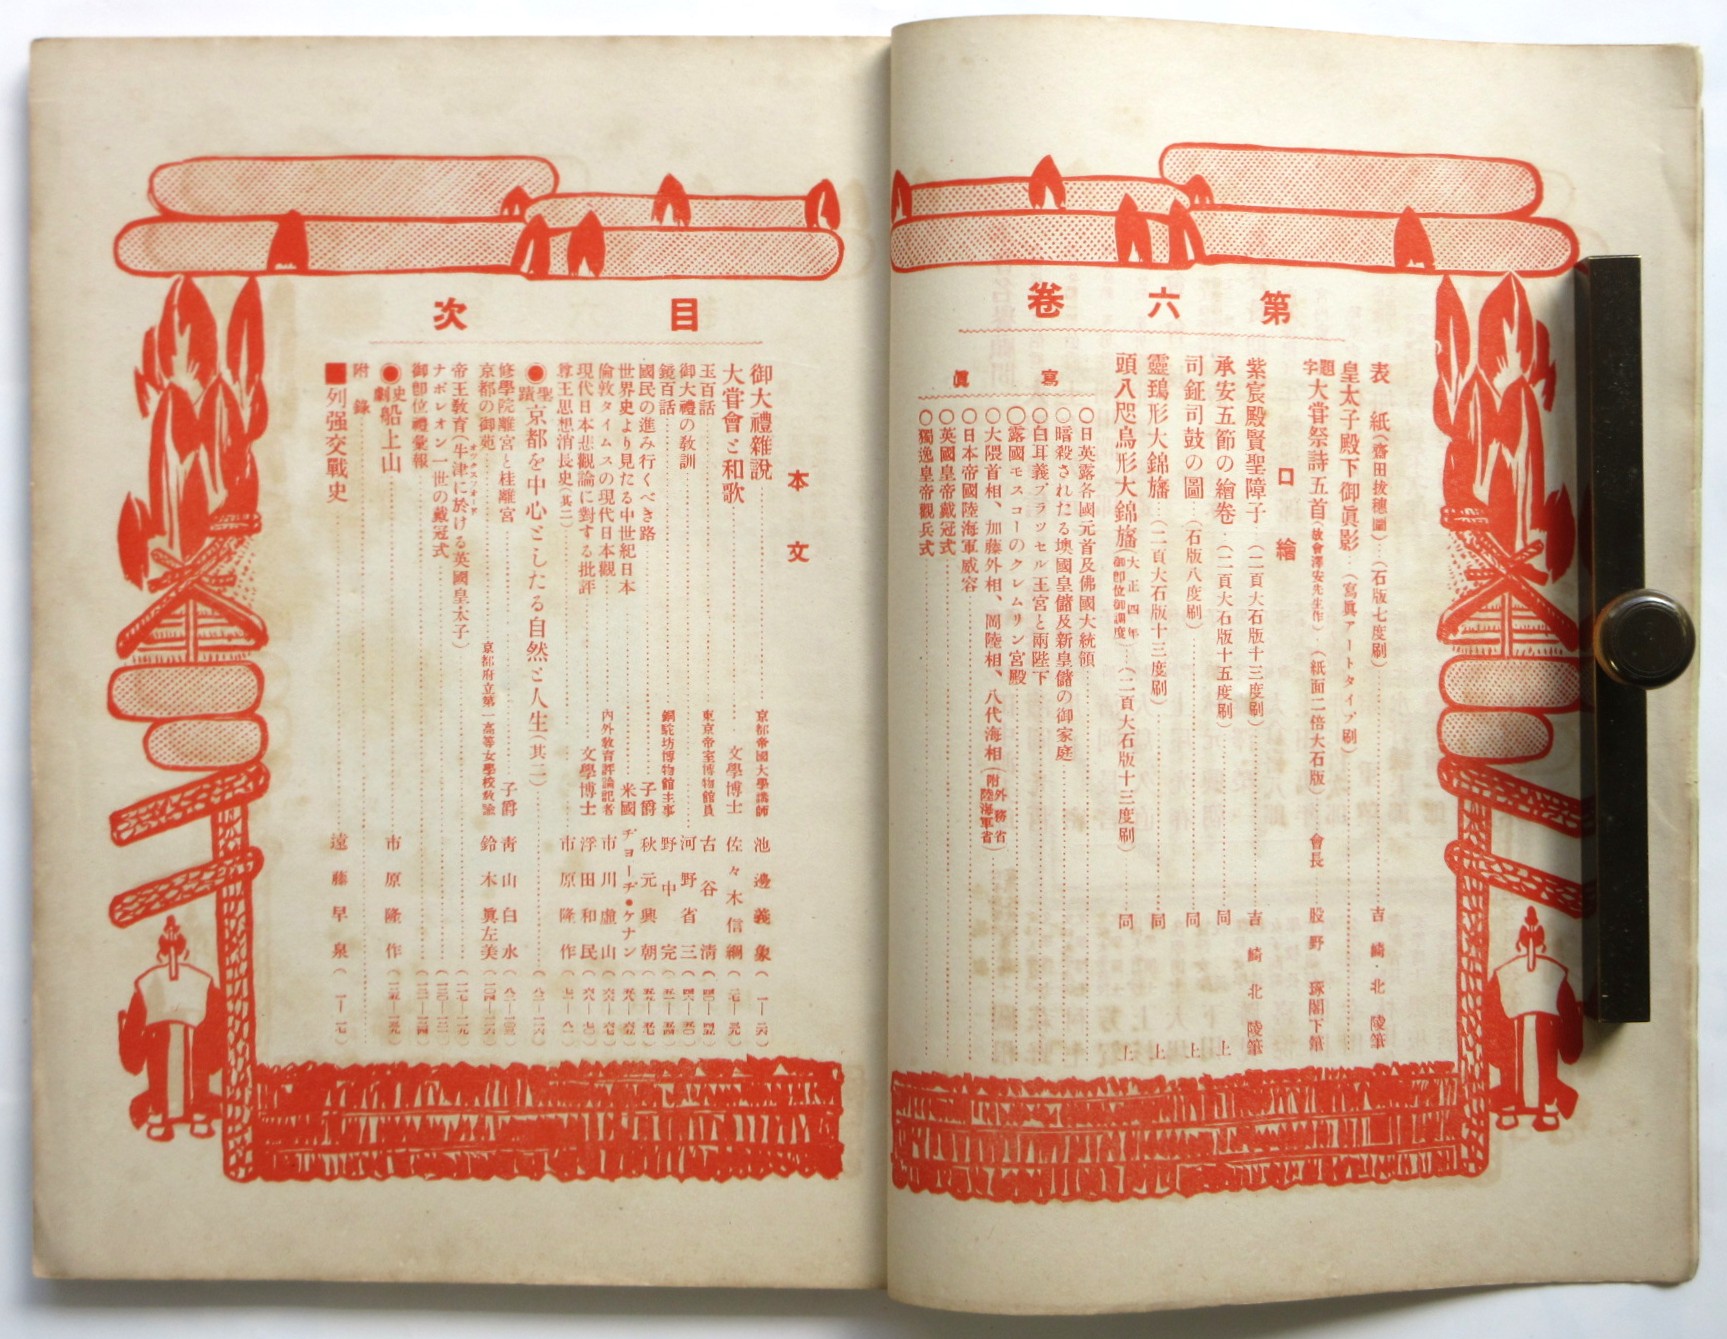 第六卷
表紙(齋田拔穗圖)(石版七度刷) 吉崎北陵筆
皇太子殿下御眞影(寫眞アートタイプ刷)
題字 大嘗祭詩五首(故會澤安先生作)(紙面二倍大石版) 會長 股野琢閣下筆
口繪
紫宸殿賢聖障子(二頁大石版十三度刷) 吉崎北陵筆
承安五節の繪卷(二頁大石版十五度刷) 同上
司鉦司鼓の圖(石版八度刷) 同上
靈鵄形大錦旛(二頁大石版十三度刷) 同上
頭八咫烏形大錦旛(大正四年御卽位御調度)(二頁大石版十三度刷) 同上
寫眞
○日英露各國元首及佛國大統領
○暗殺されたる墺國皇儲及新皇儲の御家庭
○白耳義ブラッセル王宮と兩陛下
○露國モスコーのクレムリン宮殿
○大隈首相、加藤外相、岡陸相、八代海相(附外務省陸海軍省)
○日本帝國陸海軍威容
○英國皇帝戴冠式
○獨逸皇帝觀兵式
目次
本文
御大禮雜說 京都帝國大學講師 池邊義象
大嘗會と和歌 文學博士 佐々木信綱
玉百話 東京帝室博物館員 古谷淸
御大禮の敎訓 河野省三
鏡百話 銅駝坊博物館主事 野中完一
國民の進み行くべき路 子爵 秋元興朝
世界史より見たる中世紀日本 米國 ヂョーヂ・ケナン
倫敦タイムスの現代日本觀 內外敎育評論記者 市川虛山
現代日本悲觀論に對する批評 文學博士 浮田和民
尊王思想消長史(其二) 市原隆作
●聖蹟 京都を中心としたる自然と人生(其二)
修學院離宮と桂離宮 子爵 靑山白水
京都の御苑 京都府立第一高等女學校敎諭 鈴木眞左美
帝王敎育(牛津に於ける英國皇太子)
オックスフォード
ナポレオン一世の戴冠式
御卽位禮彙報
●史劇 船上山 市原隆作
附錄
■列强交戰史 遠藤早泉(一—一七)